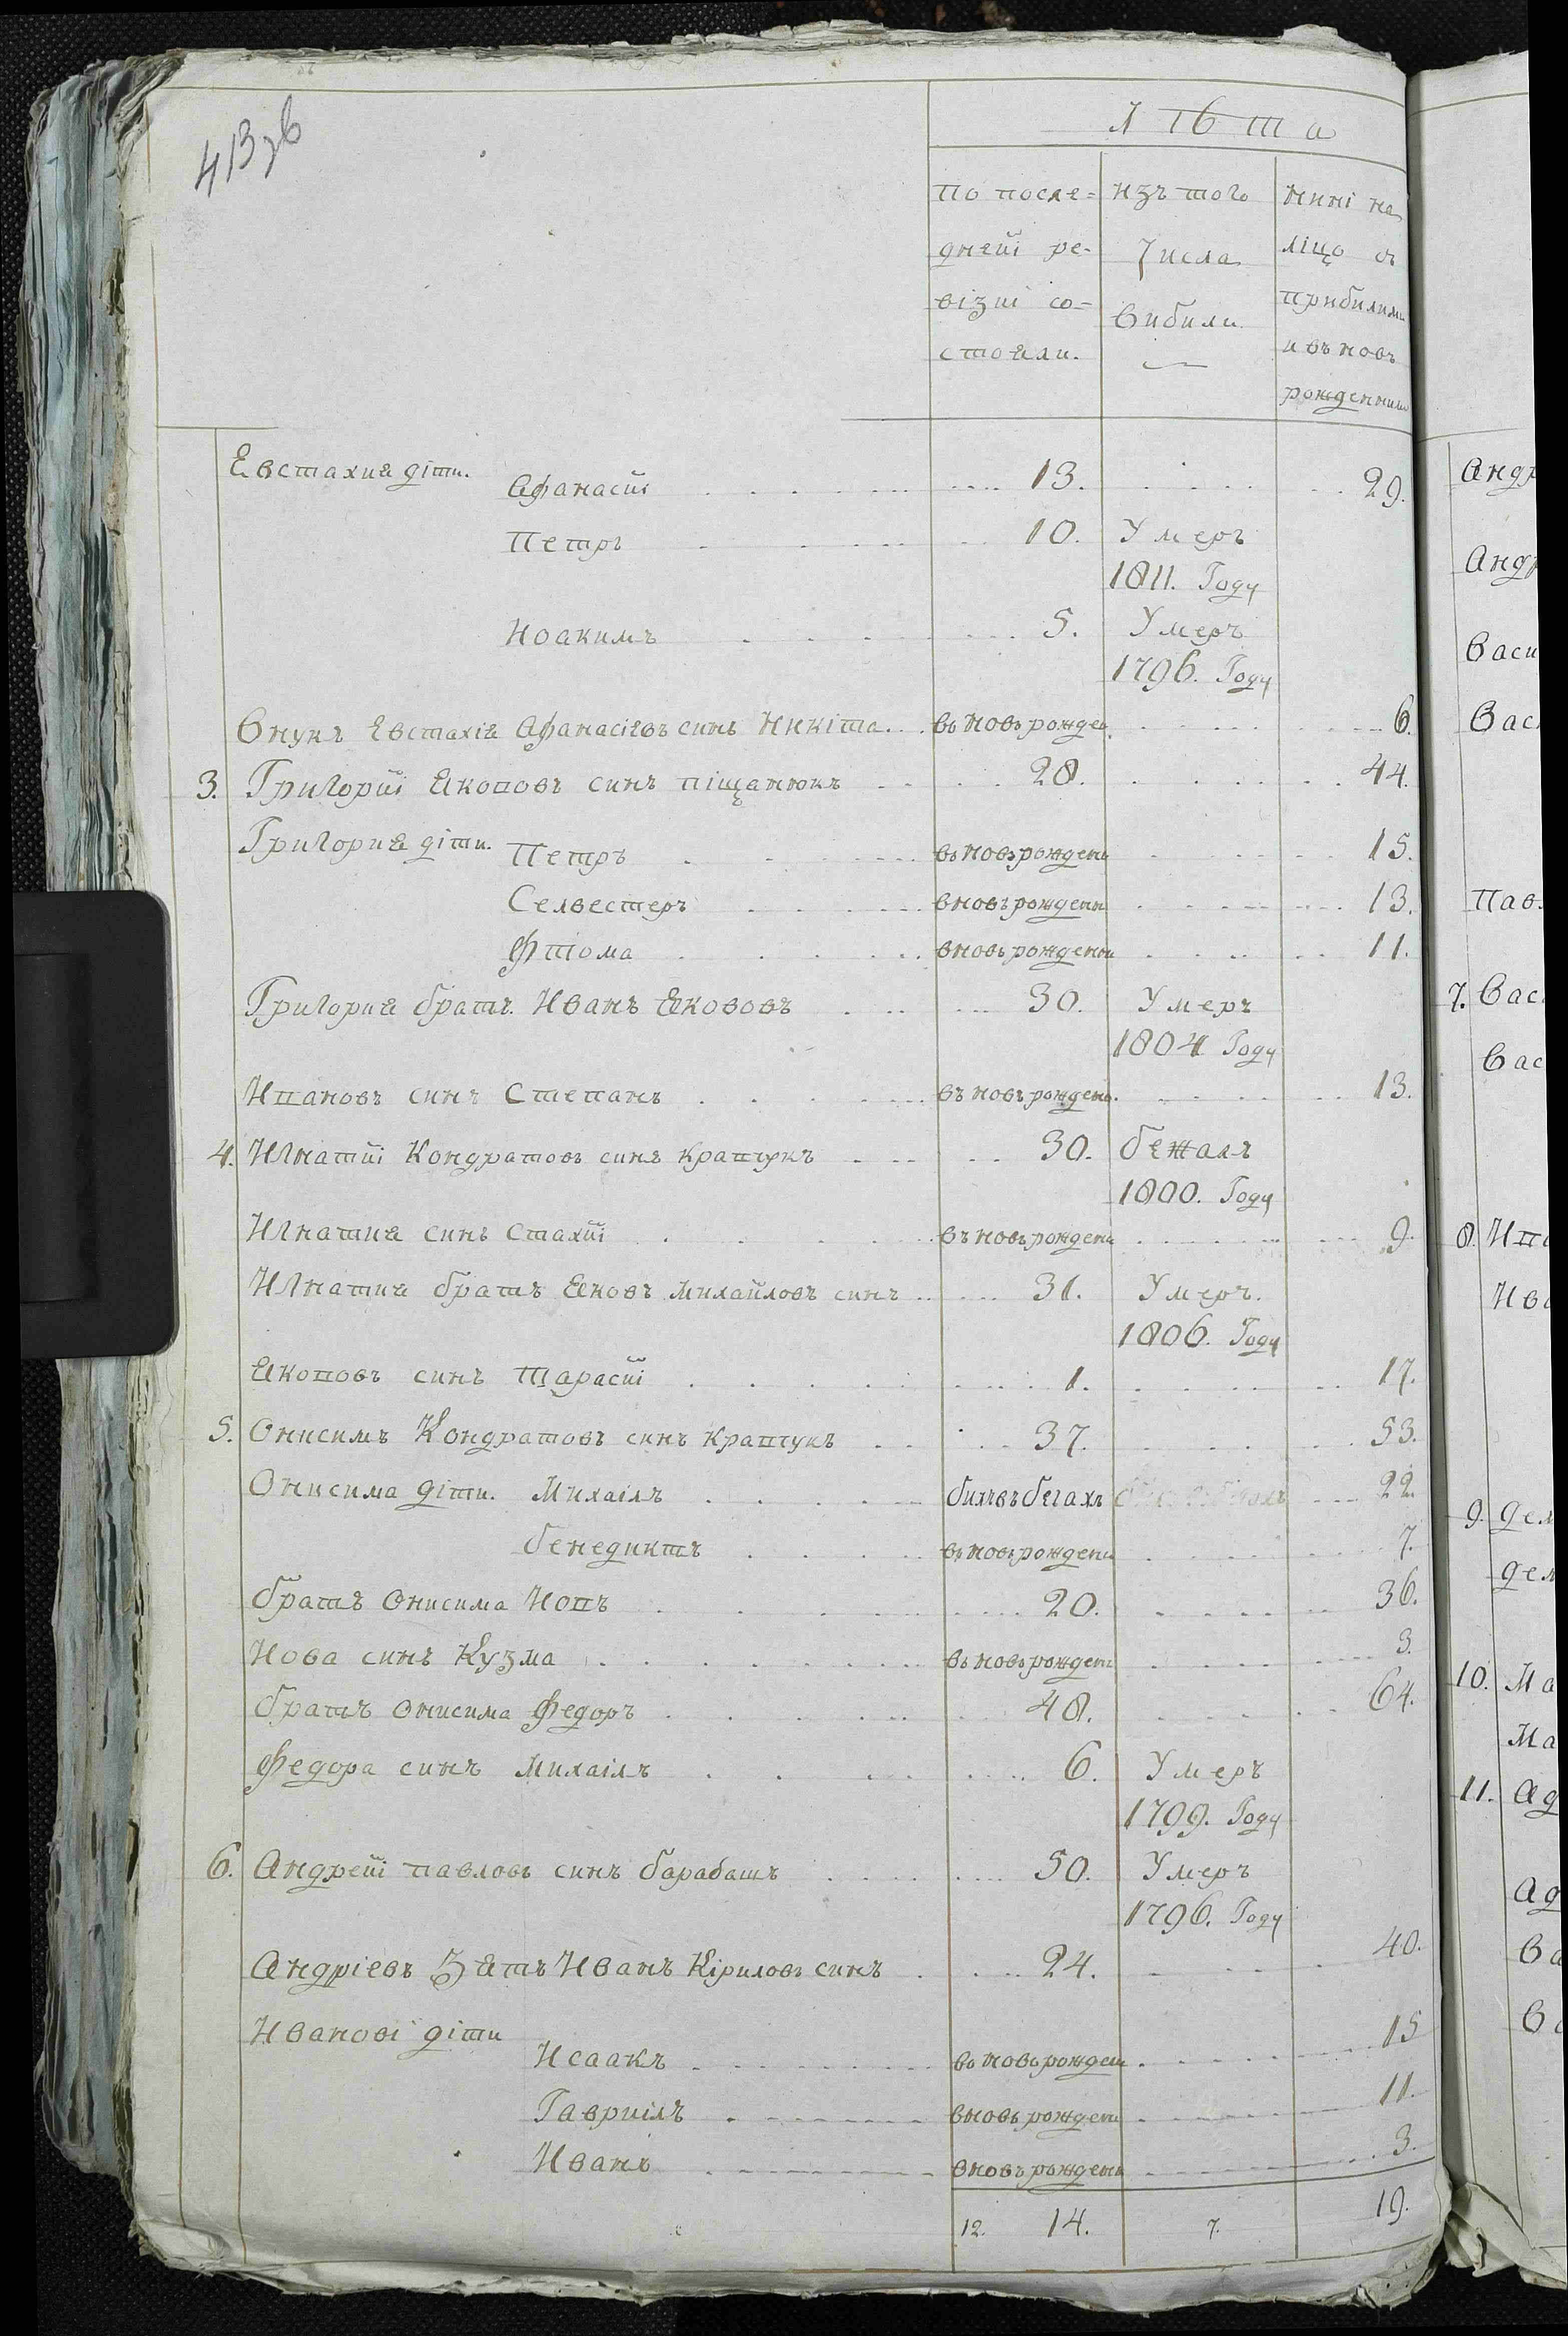 413зв
Лѣта
по после=
дней ре-
візиі со=
стояли.
изъ того
Числа
вибили
нині на
ліцо съ
прибилими
и въновъ
рожденними
Евстахия діти. Афанасиі 13. 29.
Петръ 10. Умеръ
1811. Году
Иоакимъ 5. Умеръ
1796. Году
Внукъ Евстахія Афанасіевъ синъ Никіта въновърожден 6.
3. Григориі Якововъ синъ піщанюкъ 28. 44.
Григория діти. Петръ въновърожденъ 15.
Селвестеръ вновърожденъ 13.
Фтома вновърожденъ 11.
Григория братъ. Иванъ Якововъ 30. Умеръ
1804 Году
Ивановъ синъ Степанъ въновърожденъ 13.
4. Игнатиі Кондратовъ синъ кравчукъ 30. бежалъ
1800. Году
Игнатия синъ Стахиі въновърожденъ 9.
Игнатия братъ Яковъ Михайловъ синъ 31. Умеръ.
1806. Году
Якововъ синъ Тарасиі 1. 17.
5. Онисимъ Кондратовъ синъ кравчукъ 37. 53.
Онисима діти. Михаілъ билъвъбегахъ 22.
бенедиктъ въновърожденъ 7.
братъ Онисима Иовъ 20. 36.
Иова синъ Кузма въновърожденъ 3.
братъ Онисима Федоръ 48. 64.
Федора синъ Михаілъ 6. Умеръ
1799. Году
6. Андрейі павловъ синъ барабашъ 50. Умеръ
1796. Году
Андріевъ Зятъ Иванъ Кіриловъ синъ 24. 40.
Иванові діти
Исаакъ въновърожден 15
Гавриілъ вновърожденъ 11.
Иванъ вновърожденъ 3.
12. 14. 7. 19.
Андр
Андр
Васи
Вас
Пав
7. Вас
Вас
8. Ива
Ива
9. Дем
Дем
10. Ма
Ма
11. Ад
Ад
Ва
Ва